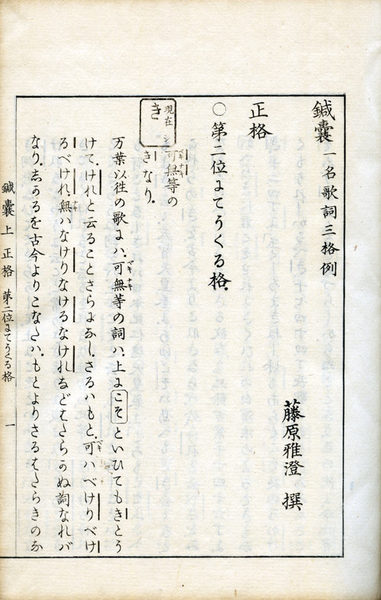 鍼嚢 一名歌詞三格例
藤原雅澄 撰
正格
○第二位にてうくる格
現在
き
可無等の
きなり、
万葉以往の歌にハ、可無等の詞ハ、上にこそといひてもきとう
けて、けれと云ることさらになし、さるハもと、可ハべけりべけ
るべけれ、無ハなけりなけるなけれなどはたらかぬ詞なれバ
なり、しかるを古今よりこなたハ、もとよりさるはたらきのな
鍼嚢 上 正格 第二位にてうくる格 一